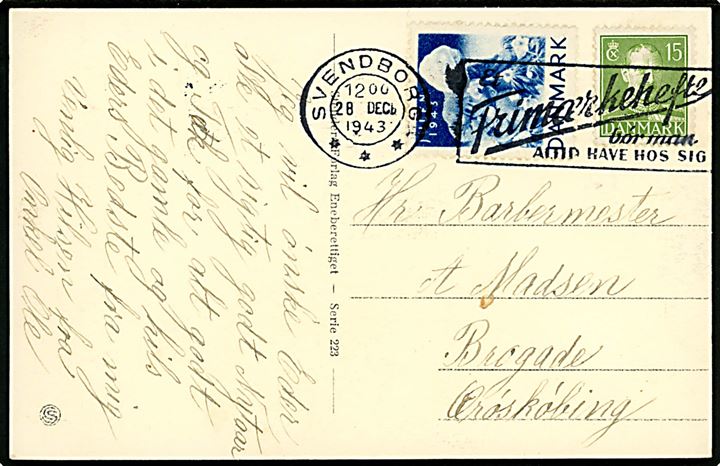 SVENDBORG
1200
28 DECb
1943
1943
DANMARK
15
DANMARK
Et
Frimærkehefte
bør man
ALTID HAVE HOS SIG
Jeg vil ønske Eder
alle et rigtig godt Nytaar
og Tak for alt godt
i det gamle og hils
Eders Bedste fra mig
Venlig Hilsen fra
Onkel Ole
Forlag Eneberettiget — Serie 223
Hr. Barbermester
A Madsen
Brogade
Ærøskøbing
S